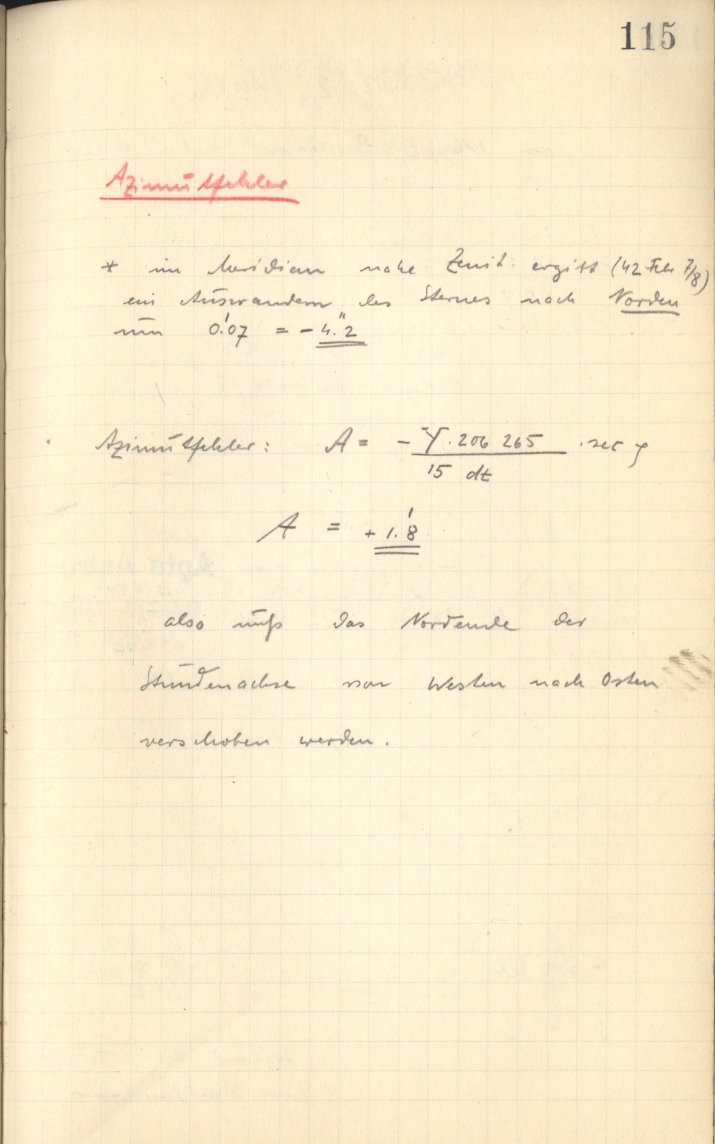 115
Azimutfehler
* im Meridian nahe Zenit ergibt (42 Feb 7/8)
ein Auswandern des Sternes nach Norden
um 0.'07 = - 4."2
Azimutfehler: A = - Y . 206 265 / 15 dt . sec φ
A = + 1.'8
also muß das Nordende der
Stundenachse von Westen nach Osten
verschoben werden.